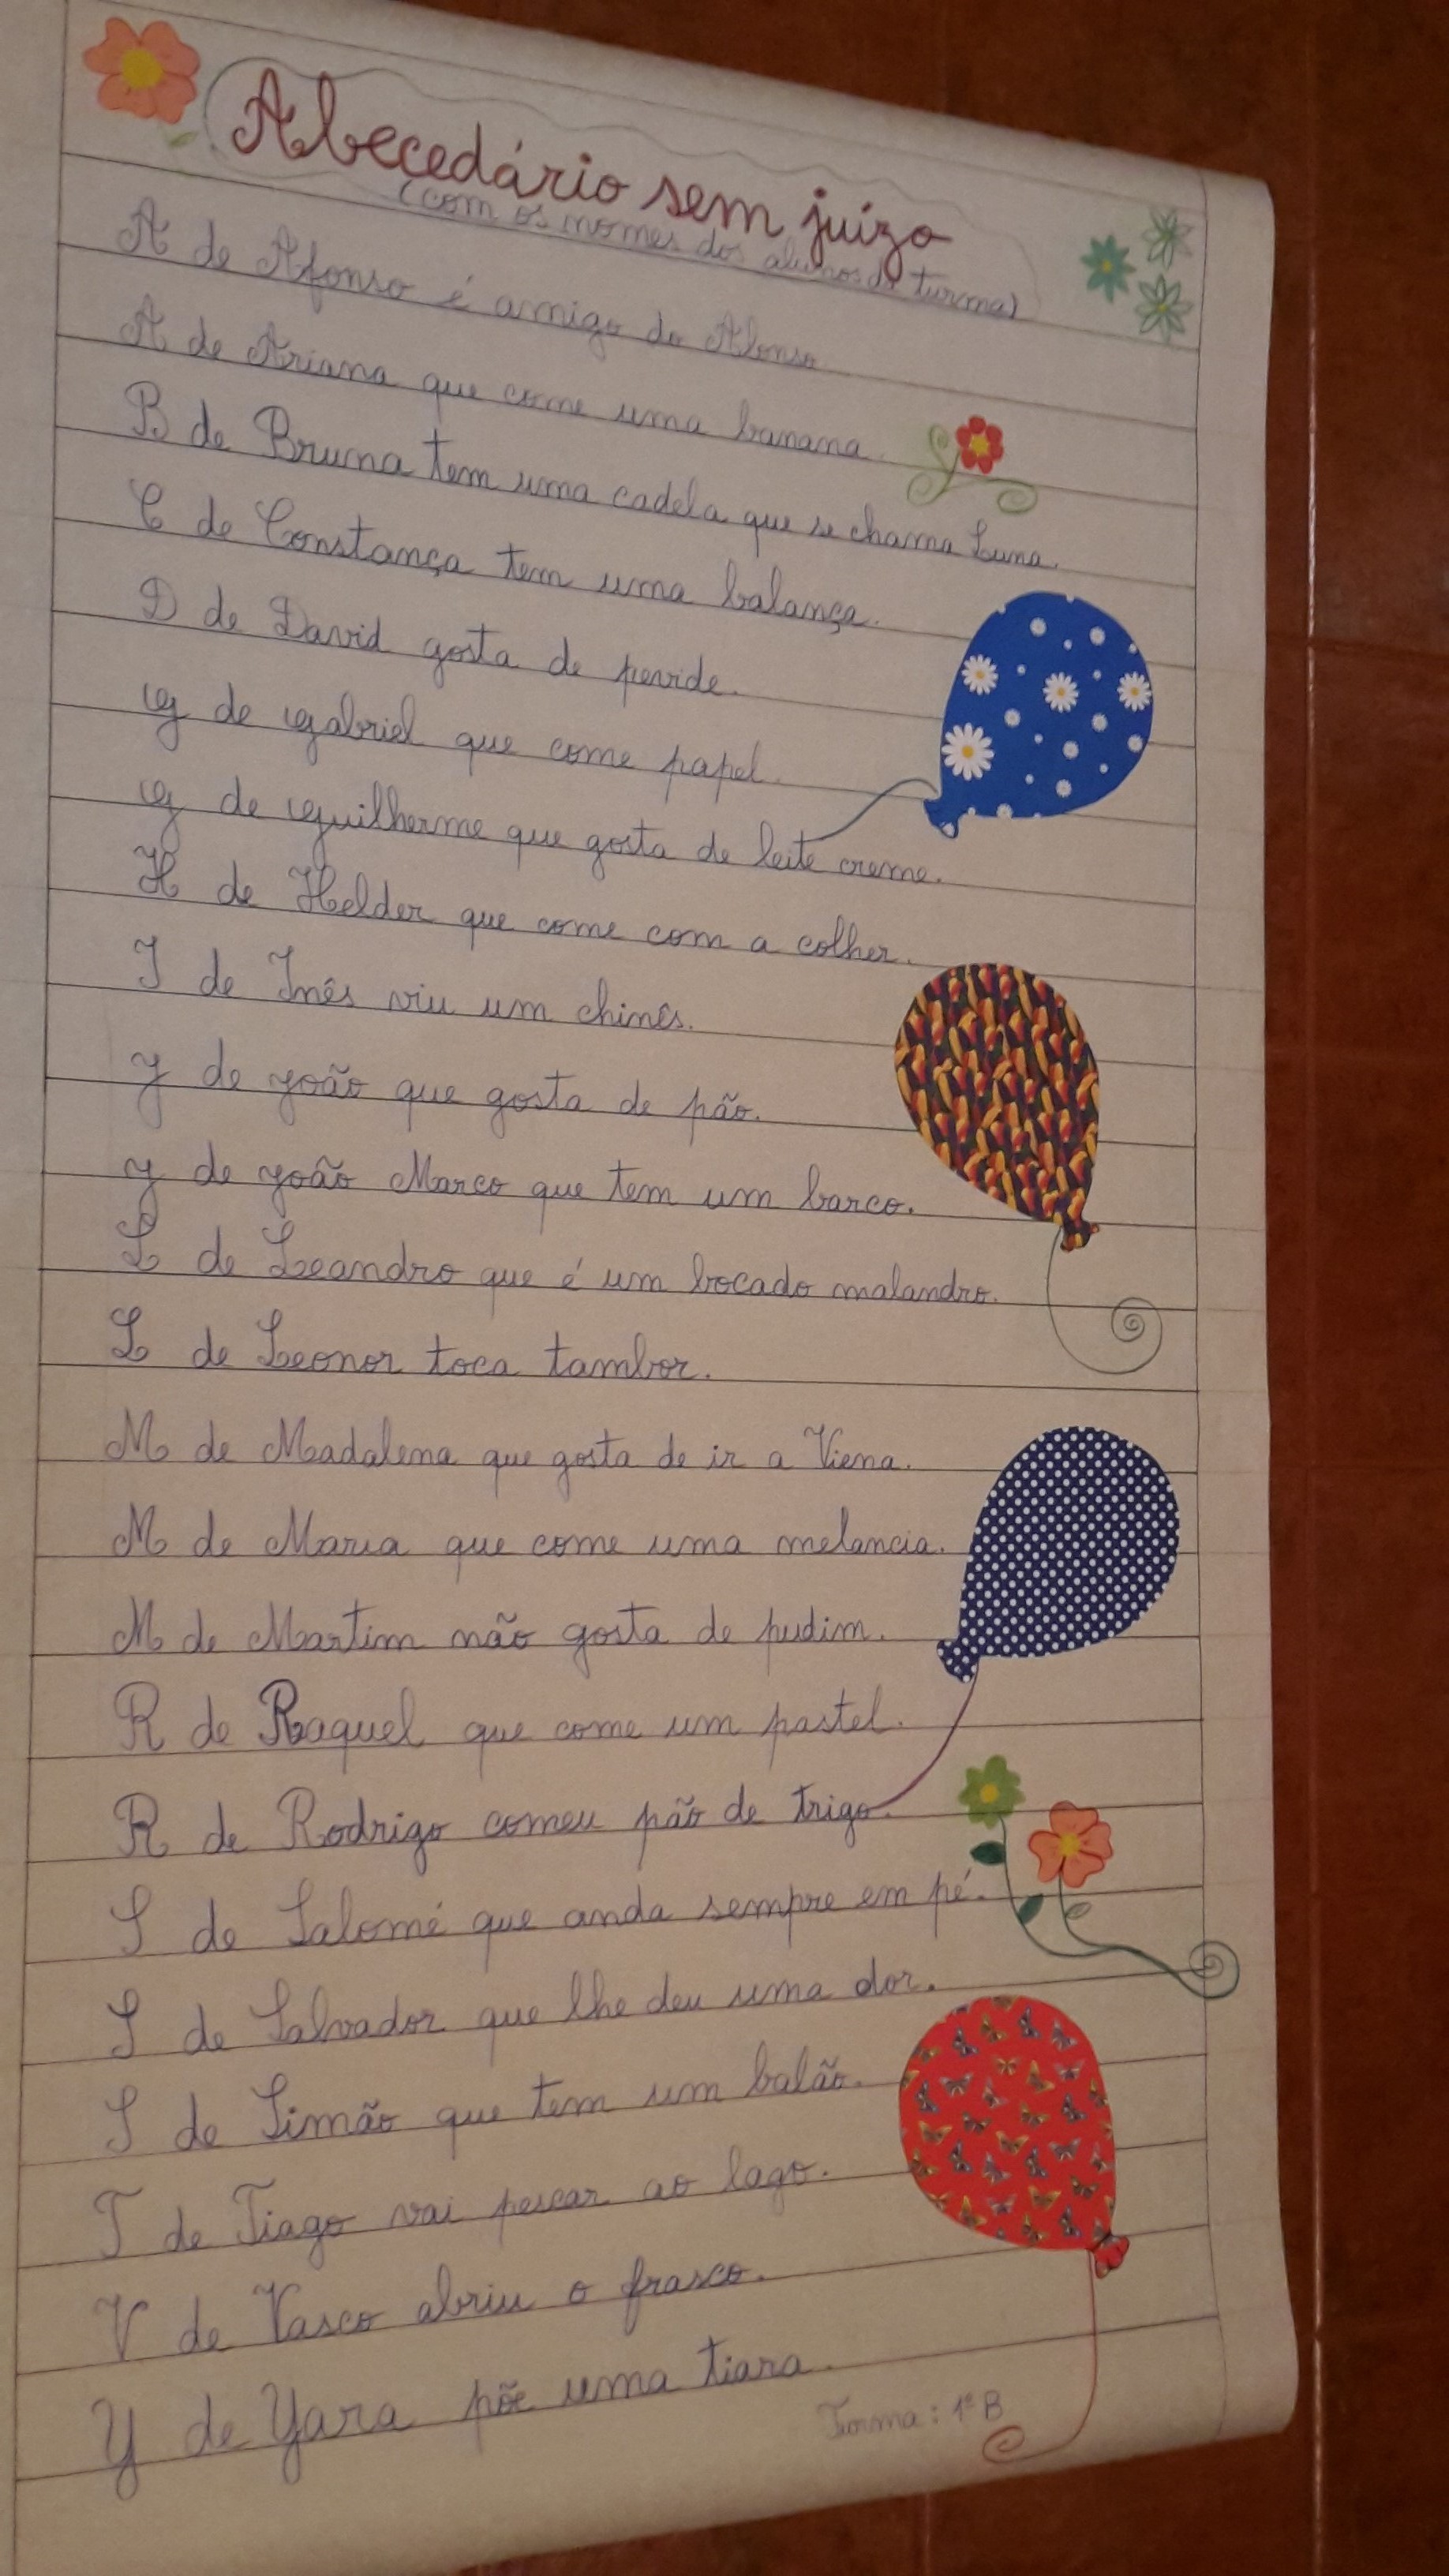 Abecedário sem juízo
(com os nomes dos alunos da turma)
A de Afonso é amigo do Alonso.
A de Ariana que come uma banana.
B de Bruna tem uma cadela que se chama Luna.
C de Constança tem uma balança.
D de David gosta de pevide.
G de Gabriel que come papel.
G de Guilherme que gosta de leite creme.
H de Helder que come com a colher.
I de Inês viu um chinês.
J de João que gosta de pão.
J de João Marco que tem um barco.
L de Leandro que é um bocado malandro.
L de Leonor toca tambor.
M de Madalena que gosta de ir a Viena.
M de Maria que come uma melancia.
M de Martim não gosta de pudim.
R de Raquel que come um pastel.
R de Rodrigo comeu pão de trigo.
S de Salomé que anda sempre em pé.
S de Salvador que lhe deu uma dor.
S de Simão que tem um balão.
T de Tiago vai pescar ao lago.
V de Vasco abriu o frasco.
Y de Yara põe uma tiara.
Turma: 1º B